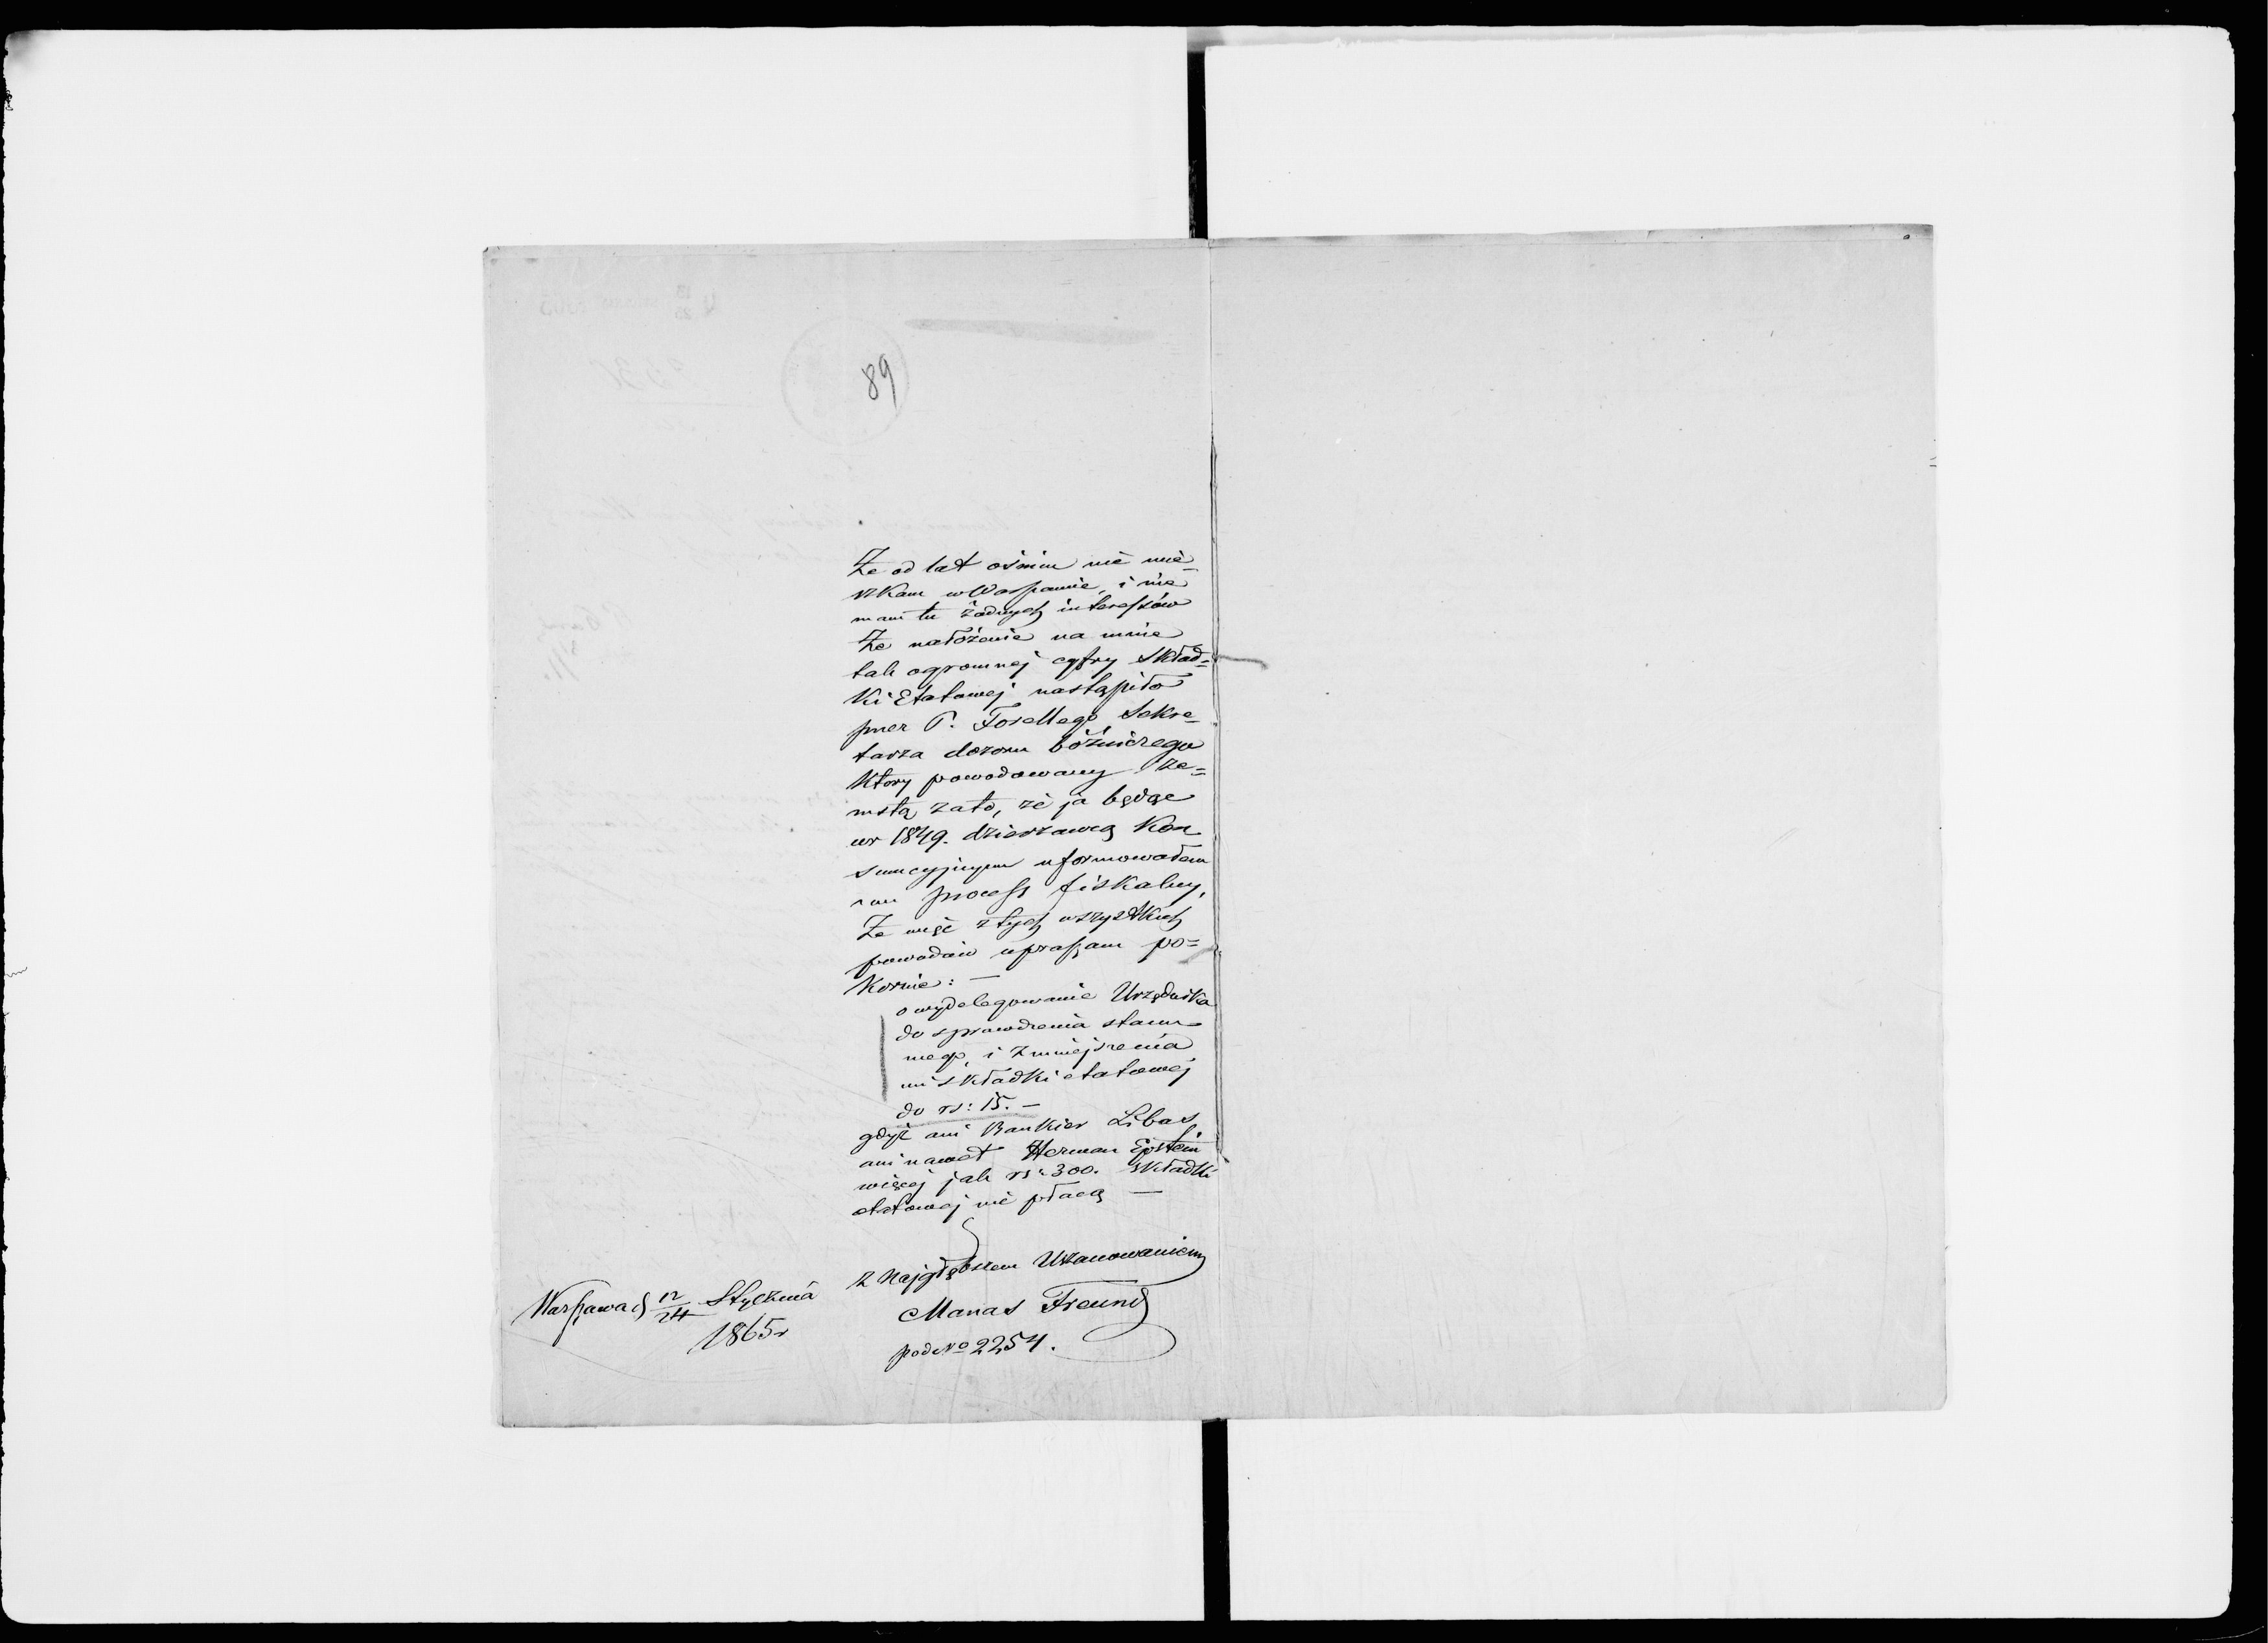 89
Że od lat ośmiu nie mie-
szkam w Warszawie, i nie
mam tu żadnych interessów
Że nałożenie na mnie
tak ogromnej cyfry Skład=
ki Etatowej nastąpiło
przez P. Sekre-
tarza dozoru bóżniczego
który powodowany ze=
mstą zato, że ja będąc
w 1849. dzierżawcą Kon
sumcyjnym uformowałem
process fiskalny,
Że więc z tych wszystkich
powodów upraszam po=
kornie: —
o wydelegowanie Urzędnika
do sprawdzenia stanu
mego, i zmniejszenia
mi składki etatowej
do rs: 15. —
gdyż ani Bankier Libas,
ani nawet Herman Epstein
więcej jak rs: 300. składki
etatowej nie płacą —
Z Najgłębszem Uszanowaniem
Manas Freund
pod No 2254.
Warszawa d 12/24 Stycznia
1865r